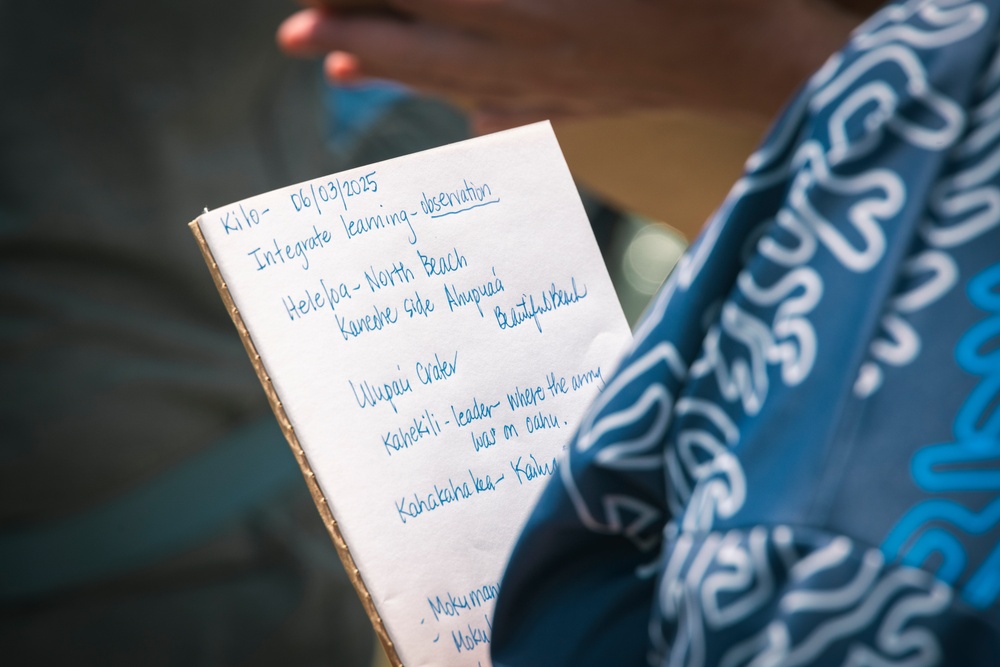 Kilo- 06/03/2025
Integrate learning- observation
Heleloa- North Beach
Kaneohe side Ahupuaʻa
Beautiful Beach
Ulupaʻu Crater
Kahekili- leader- where the army
was on oahu.
Kahakahakea- Kailu
- Mokuman
- Moku